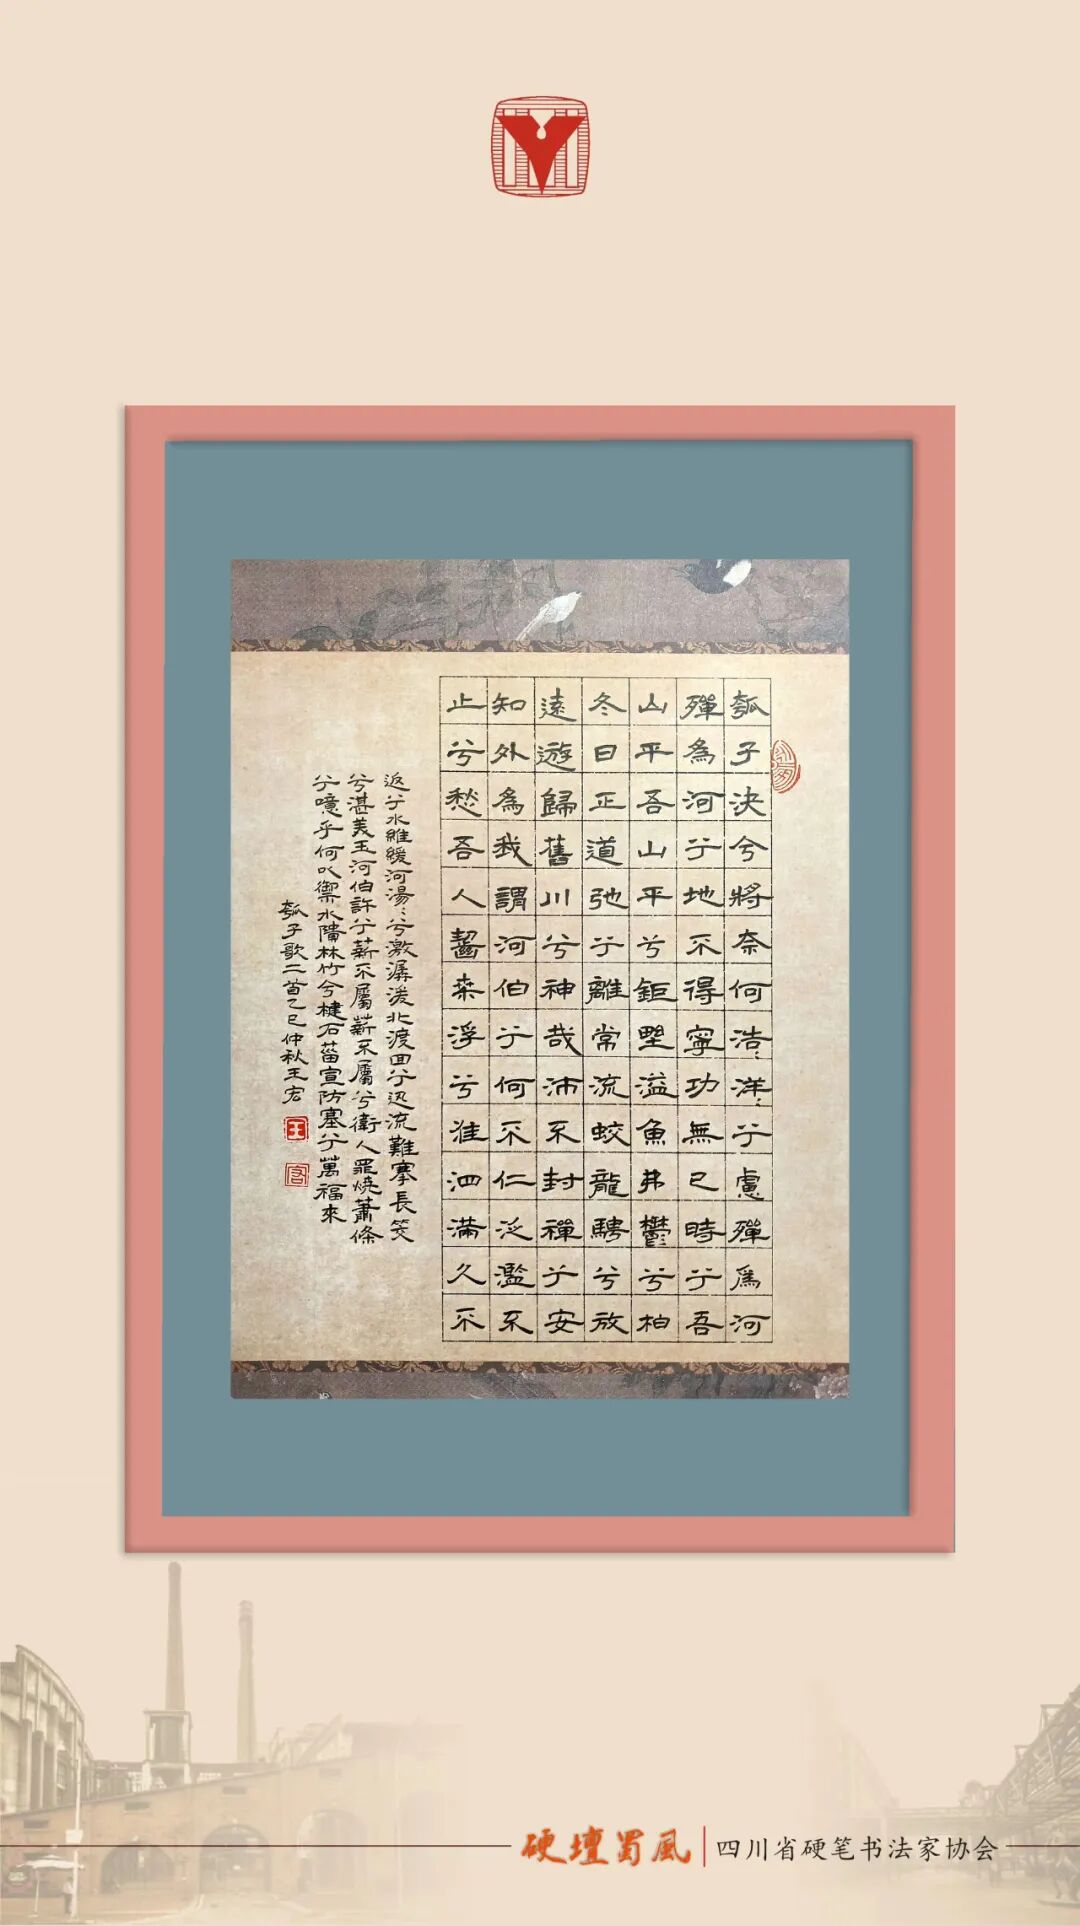 瓠子決兮將奈何浩:洋:兮慮殫為河
殫為河兮地不得寧功無已時兮吾
山平吾山平兮鉅壄溢魚弗鬱兮柏
冬日正道弛兮離常流蛟龍騁兮放
遠遊歸舊川兮神哉沛不封禪兮安
知外為我謂河伯兮何不仁泛濫不
止兮愁吾人齧桑浮兮淮泗滿久不
返兮水維緩河湯:兮激潺湲北渡回兮迅流難搴長筊
兮湛美玉河伯許兮薪不屬薪不屬兮衛人罪燒蕭條
兮噫乎何以禦水隤林竹兮楗石菑宣防塞兮萬福來
瓠子歌二首乙巳仲秋王宏
王
硬壇蜀風
四川省硬笔书法家协会